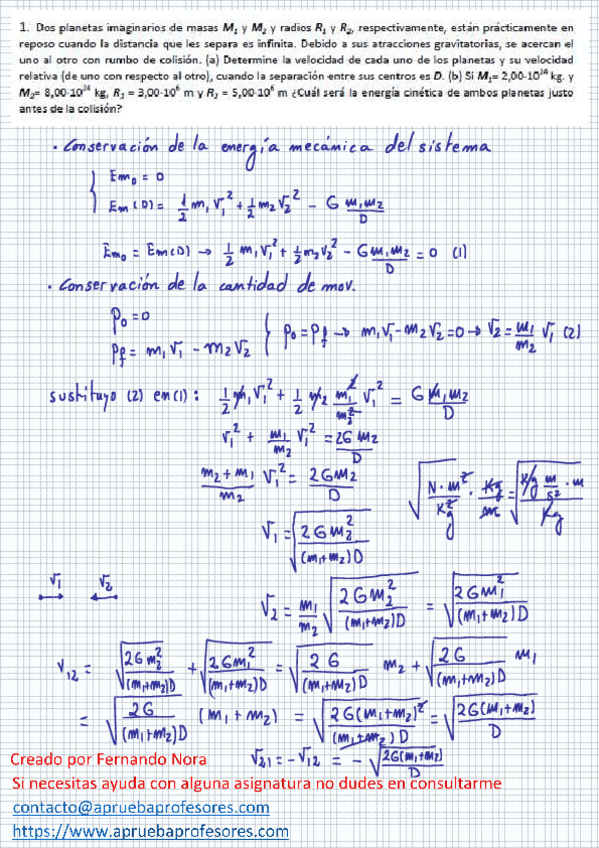 1. Dos planetas imaginarios de masas M₁ y M₂ y radios R₁ y R₂, respectivamente, están prácticamente en
reposo cuando la distancia que les separa es infinita. Debido a sus atracciones gravitatorias, se acercan el
uno al otro con rumbo de colisión. (a) Determine la velocidad de cada uno de los planetas y su velocidad
relativa (de uno con respecto al otro), cuando la separación entre sus centros es D. (b) Si M₁= 2,00·10²⁴ kg. y
M₂= 8,00·10²⁴ kg, R₁ = 3,00·10⁶ m y R₂ = 5,00·10⁶ m ¿Cuál será la energía cinética de ambos planetas justo
antes de la colisión?
· Conservación de la energía mecánica del sistema
Em₀ = 0
Em(D) = 1/2 m₁v₁² + 1/2 m₂v₂² - G m₁m₂/D
Em₀ = Em(D) → 1/2 m₁v₁² + 1/2 m₂v₂² - G m₁m₂/D = 0 (1)
· Conservación de la cantidad de mov.
p₀ = 0
pf = m₁v₁ - m₂v₂ { p₀ = pf → m₁v₁ - m₂v₂ = 0 → v₂ = m₁/m₂ v₁ (2)
sustituyo (2) en (1): 1/2 m₁v₁² + 1/2 m₂ m₁²/m₂² v₁² = G m₁m₂/D
v₁² + m₁/m₂ v₁² = 2Gm₂/D
(m₂+m₁)/m₂ v₁² = 2Gm₂/D √(N·m²/Kg² · Kg/m) = √(Kg m/s² · m / Kg)
v₁ = √(2Gm₂²/((m₁+m₂)D))
v₁ v₂
v₂ = m₁/m₂ √(2Gm₂²/((m₁+m₂)D)) = √(2Gm₁²/((m₁+m₂)D))
v₁₂ = √(2Gm₂²/((m₁+m₂)D)) + √(2Gm₁²/((m₁+m₂)D)) = √(2G/((m₁+m₂)D)) m₂ + √(2G/((m₁+m₂)D)) m₁
= √(2G/((m₁+m₂)D)) (m₁+m₂) = √(2G(m₁+m₂)²/((m₁+m₂)D)) = √(2G(m₁+m₂)/D)
v₂₁ = -v₁₂ = -√(2G(m₁+m₂)/D)
Creado por Fernando Nora
Si necesitas ayuda con alguna asignatura no dudes en consultarme
contacto@apruebaprofesores.com
https://www.apruebaprofesores.com